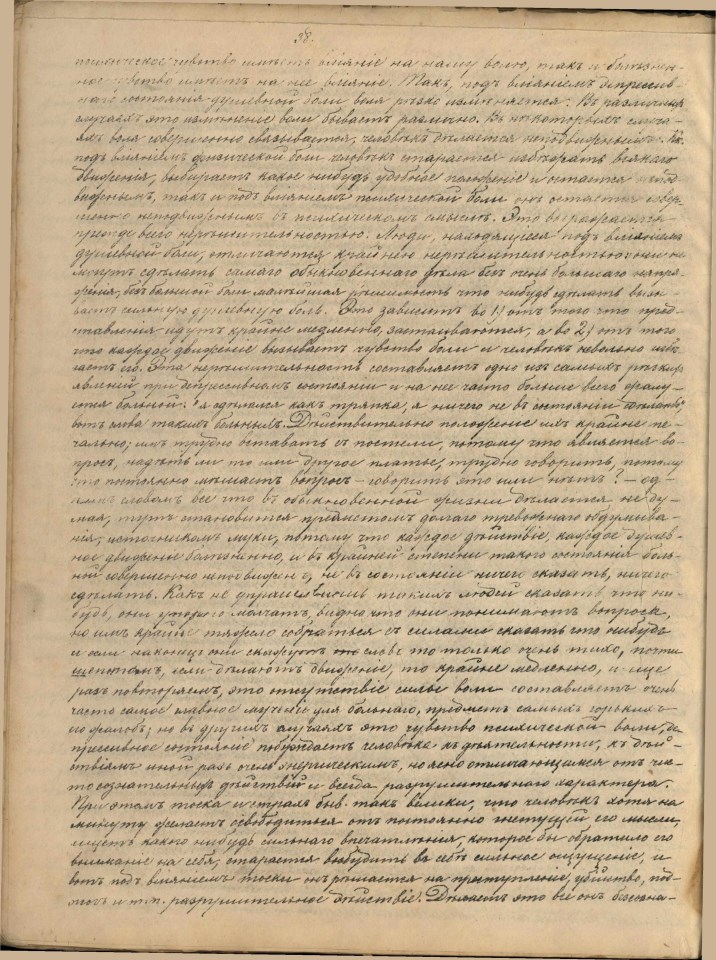 38.
психическое чувство имѣетъ вліяніе на нашу волю, такъ и болѣзнен-
ное чувство имѣетъ на нее вліяніе. Такъ, подъ вліяніемъ депрессив-
наго состоянія душевной боли воля рѣзко измѣняется. Въ различныхъ
случаяхъ это измѣненіе воли бываетъ различно. Въ нѣкоторыхъ случа-
яхъ воля совершенно связывается, человѣкъ дѣлается неподвижнымъ. Какъ
подъ вліяніемъ физической боли человѣкъ старается избѣгать всякаго
движенія, выбираетъ какое нибудь удобное положеніе и остается непод-
вижнымъ, такъ и подъ вліяніемъ психической боли онъ остается совер-
шенно неподвижнымъ въ психическомъ смыслѣ. Это выражается
прежде всего нерѣшительностью. Люди, находящіеся подъ вліяніемъ
душевной боли, отличаются крайнею нерѣшительностью: они не
могутъ сдѣлать самаго обыкновеннаго дѣла безъ очень большаго напря-
женія, безъ большой боли малѣйшая рѣшимость что нибудь сдѣлать вызы-
ваетъ сильную душевную боль. Это зависитъ во 1) отъ того что пред-
ставленія идутъ крайне медленно, застаиваются, а во 2) отъ того
что каждое движеніе вызываетъ чувство боли и человѣкъ невольно избѣ-
гаетъ его. Эта нерѣшительность составляетъ одно изъ самыхъ рѣзкихъ
явленій при депрессивномъ состояніи и на нее часто больше всего жалу-
ется больной. "я сдѣлался какъ тряпка, я ничего не въ состояніи дѣлать"
вотъ слова такихъ больныхъ. Дѣйствительно положеніе ихъ крайне пе-
чально; имъ трудно оставать съ постели, потому что является во-
просъ, надѣть ли то или другое платье, трудно говорить, потому
что постоянно мѣшаетъ вопросъ – говорить это или нѣтъ? – од-
нимъ словомъ все что въ обыкновенной жизни дѣлается не ду-
мая, тутъ становится предметомъ долгаго тревожнаго обдумыва-
нія, источникомъ муки, потому что каждое дѣйствіе, каждое душев-
ное движеніе болѣзненно, и въ крайней степени такого состоянія боль-
ной совершенно неподвиженъ, не въ состояніи ничего сказать, ничего
сдѣлать. Какъ не упрашиваешь такихъ людей сказать что ни-
будь, они упорно молчатъ, видно что они понимаютъ вопросъ,
но имъ крайне тяжело собраться съ силами сказать что нибудь
и если наконецъ они скажутъ слово то только очень тихо, почти
шепотомъ, если дѣлаютъ движеніе, то крайне медленно, и еще
разъ повторяемъ, это отсутствіе силы воли составляетъ очень
часто самое главное мученіе для больнаго, предметъ самыхъ горькихъ
его жалобъ; но въ другихъ случаяхъ это чувство психической боли, де-
прессивное состояніе побуждаетъ человѣка къ дѣятельности, къ дѣй-
ствіямъ иной разъ очень энергическимъ, но ясно отличающимся отъ чис-
то сознательныхъ дѣйствій и всегда разрушительнаго характера.
При этомъ тоска и страхъ быв. такъ велики, что человѣкъ хотя на
минуту желаетъ освободиться отъ постоянно гнетущей его мысли,
ищетъ какого нибудь сильнаго впечатлѣнія, которое бы обратило его
вниманіе на себя, старается возбудить въ себѣ сильное ощущеніе, и
вотъ подъ вліяніемъ тоски онъ рѣшается на преступленіе, убійство, под-
жогъ и т.п. разрушительное дѣйствіе. Дѣлаетъ это все онъ безсозна-